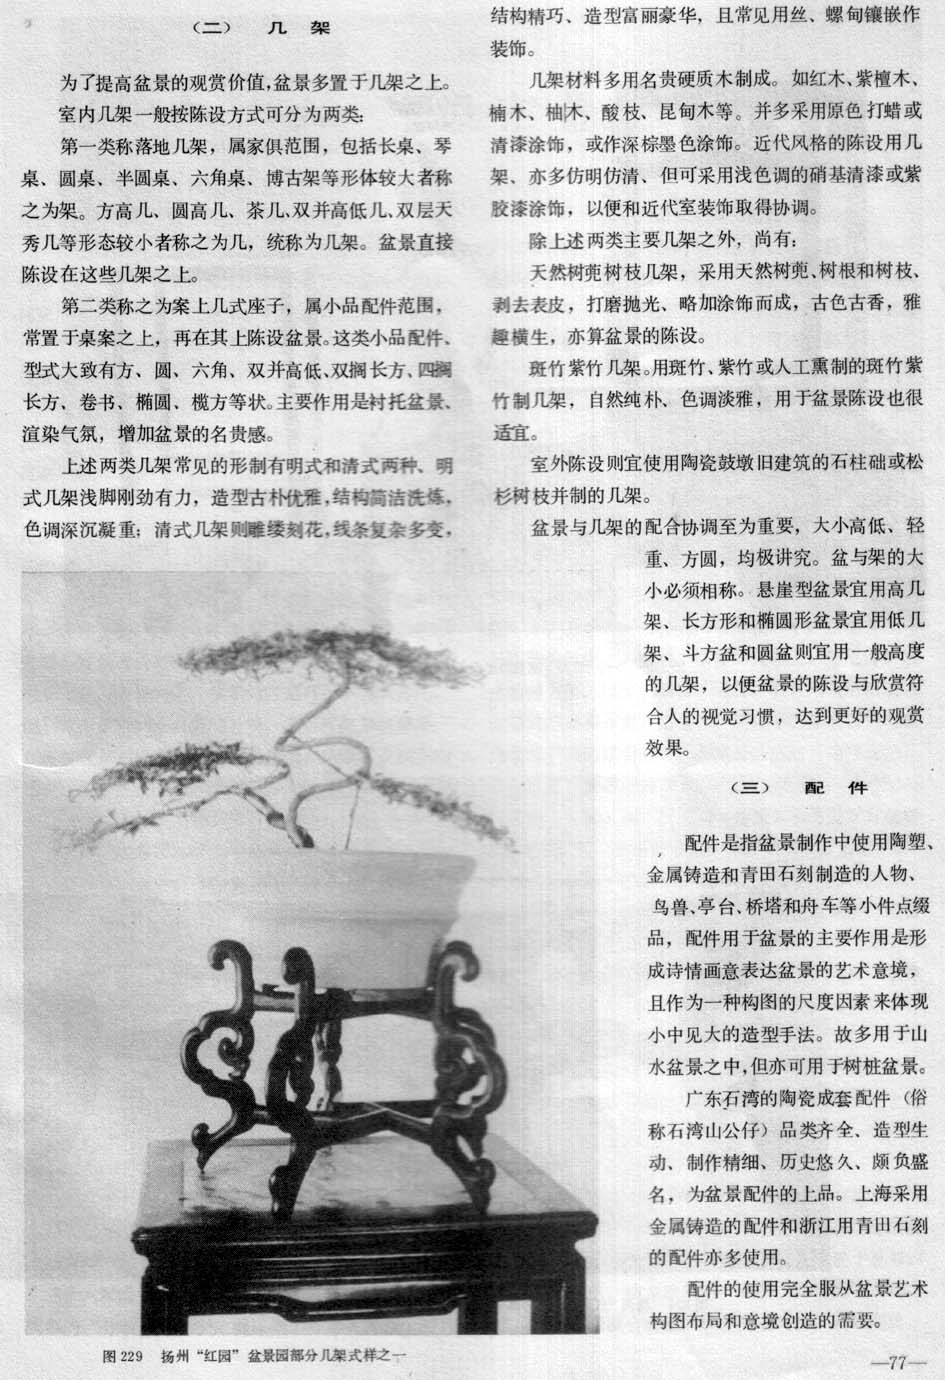 （二） 几 架
为了提高盆景的观赏价值，盆景多置于几架之上。
室内几架一般按陈设方式可分为两类：
第一类称落地几架，属家俱范围，包括长桌、琴
桌、圆桌、半圆桌、六角桌、博古架等形体较大者称
之为架。方高几、圆高几、茶几、双并高低几、双层天
秀几等形态较小者称之为几，统称为几架。盆景直接
陈设在这些几架之上。
第二类称之为案上几式座子，属小品配件范围，
常置于桌案之上，再在其上陈设盆景。这类小品配件、
型式大致有方、圆、六角、双并高低、双搁长方、四搁
长方、卷书、椭圆、榄方等状。主要作用是衬托盆景、
渲染气氛，增加盆景的名贵感。
上述两类几架常见的形制有明式和清式两种、明
式几架浅脚刚劲有力，造型古朴优雅，结构简洁洗炼，
色调深沉凝重；清式几架则雕缕刻花，线条复杂多变，
结构精巧、造型富丽豪华，且常见用丝、螺甸镶嵌作
装饰。
几架材料多用名贵硬质木制成。如红木、紫檀木、
楠木、柚木、酸枝、昆甸木等。并多采用原色打蜡或
清漆涂饰，或作深棕墨色涂饰。近代风格的陈设用几
架、亦多仿明仿清、但可采用浅色调的硝基清漆或紫
胶漆涂饰，以便和近代室装饰取得协调。
除上述两类主要几架之外，尚有：
天然树蔸树枝几架，采用天然树蔸、树根和树枝、
剥去表皮，打磨抛光、略加涂饰而成，古色古香，雅
趣横生，亦算盆景的陈设。
斑竹紫竹几架。用斑竹、紫竹或人工熏制的斑竹紫
竹制几架，自然纯朴、色调淡雅，用于盆景陈设也很
适宜。
室外陈设则宜使用陶瓷鼓墩旧建筑的石柱础或松
杉树枝并制的几架。
盆景与几架的配合协调至为重要，大小高低、轻
重、方圆，均极讲究。盆与架的大
小必须相称。悬崖型盆景宜用高几
架、长方形和椭圆形盆景宜用低几
架、斗方盆和圆盆则宜用一般高度
的几架，以便盆景的陈设与欣赏符
合人的视觉习惯，达到更好的观赏
效果。
（三） 配 件
配件是指盆景制作中使用陶塑、
金属铸造和青田石刻制造的人物、
鸟兽、亭台、桥塔和舟车等小件点缀
品，配件用于盆景的主要作用是形
成诗情画意表达盆景的艺术意境，
且作为一种构图的尺度因素来体现
小中见大的造型手法。故多用于山
水盆景之中，但亦可用于树桩盆景。
广东石湾的陶瓷成套配件（俗
称石湾山公仔）品类齐全、造型生
动、制作精细、历史悠久、颇负盛
名，为盆景配件的上品。上海采用
金属铸造的配件和浙江用青田石刻
的配件亦多使用。
配件的使用完全服从盆景艺术
构图布局和意境创造的需要。
图229 扬州“红园”盆景园部分几架式样之一
—77—